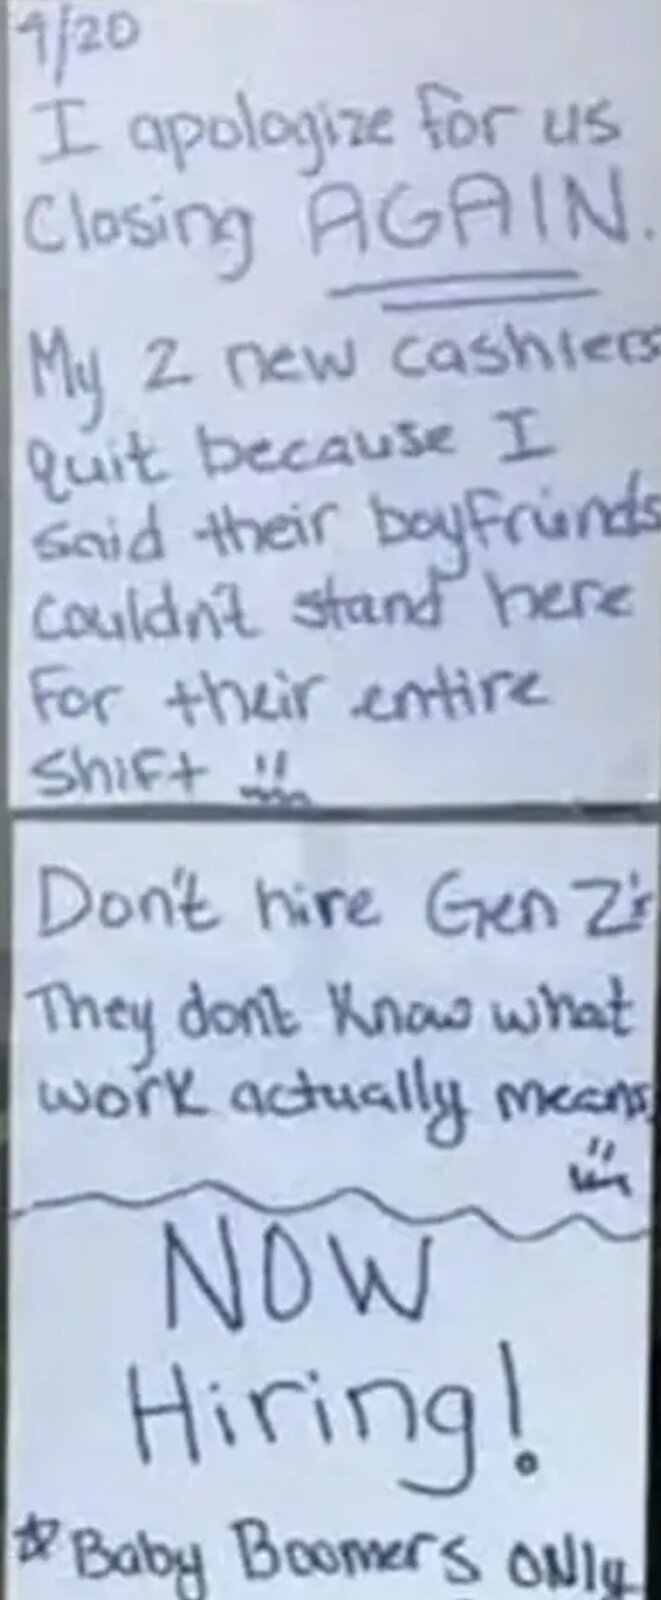 4/20
I apologize for us
Closing AGAIN.
My 2 new cashiers
quit because I
said their boyfriends
couldn't stand here
For their entire
Shift
Don't hire Gen Z's
They don't know what
work actually means
NOW
Hiring!
☆Baby Boomers ONly